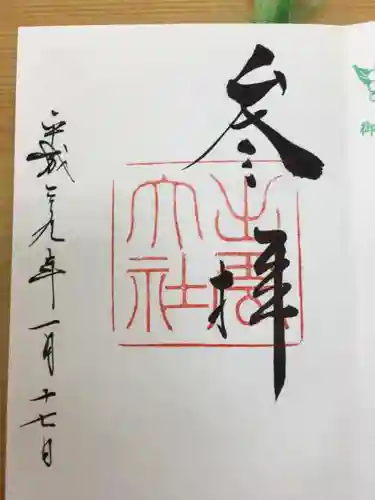 御
参拝
出雲
大社
平成二九年一月十七日